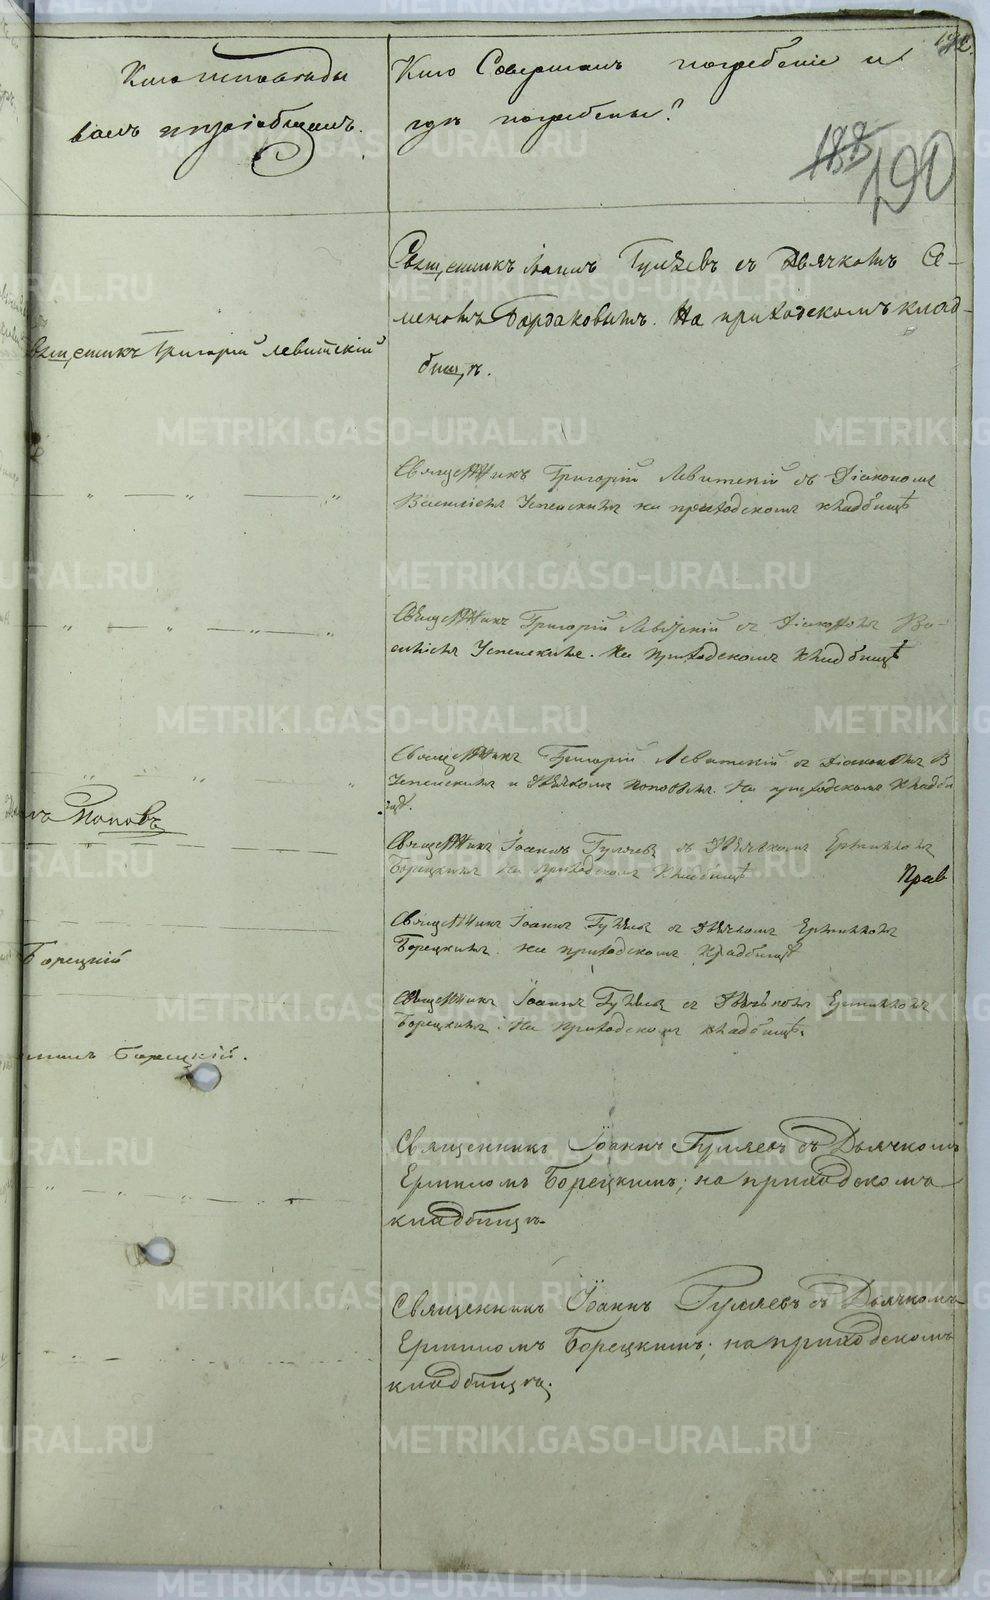 Кто исповѣды
валъ и пріобщалъ.
Кто Совершалъ погребеніе и
гдѣ погребены?
188
190
Священникъ Іоаннъ Гуляевъ съ Дьячкомъ Се-
меномъ Бардаковымъ. На приходскомъ клад-
бищѣ.
Священникъ Григорій Левитскій
Священникъ Григорій Левитскій съ Діакономъ
Василіемъ Успенскимъ на приходскомъ кладбищѣ
Священникъ Григорій Левитскій съ Діакономъ Ва-
силіемъ Успенскимъ. На приходскомъ кладбищѣ
Священникъ Григорій Левитскій съ Діакономъ В
Успенскимъ и Дьячкомъ Поповымъ. На приходскомъ кладби
щѣ.
Поповъ
Священникъ Іоаннъ Гуляевъ съ Дьячкомъ Ермиломъ
Борецкимъ На приходскомъ кладбищѣ
Прав
Священникъ Іоаннъ Гуляевъ съ Дьячкомъ Ермиломъ
Борецкимъ. на приходскомъ кладбищѣ
Борецкій
Священникъ Іоаннъ Гуляевъ съ Дьячкомъ Ермиломъ
Борецкимъ. На приходскомъ кладбищѣ.
Борецкій.
Священникъ Іоаннъ Гуляевъ съ Дьячкомъ
Ермиломъ Борецкимъ; на приходскомъ
кладбищѣ.
Священникъ Іоаннъ Гуляевъ съ Дьячкомъ
Ермиломъ Борецкимъ; на приходскомъ
кладбищѣ.
METRIKI.GASO-URAL.RU